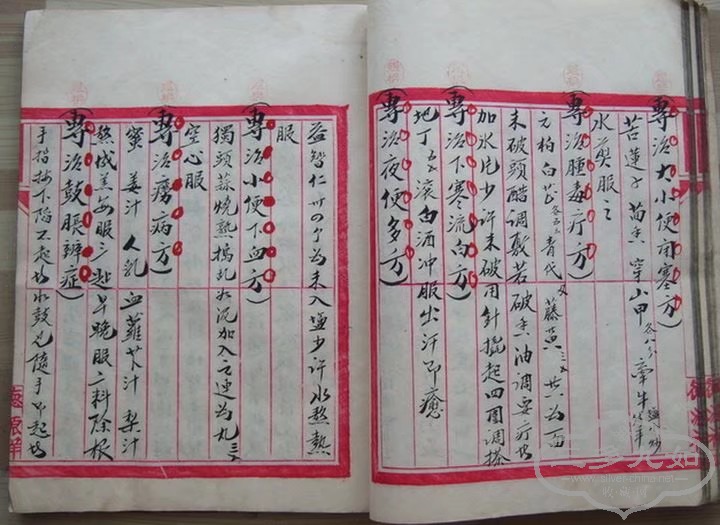 (專治大小便閉塞方)
苦蓮子 茴香 穿山甲 各八分 牽牛
水煎服之
(專治腫毒疔方)
元柏 白芷 各五分 青代 又 藤黃 三分 共為面
末破頭醋調敷若破香油調要疔此
加氷片少許未破用針挑起四圍調搽
(專治下寒流白方)
地丁 滾白酒沖服出汗即癒
(專治夜便多方)
益智仁 廿四个為末入塩少許水熬熱
服
(專治小便下血方)
獨頭蒜燒熟搗乱如泥加入黃連為丸
空心服
(專治癆病方)
蜜 姜汁 人乳 血 蘿卜汁 梨汁
熬成羔每服三匙早晚服二料除根
(專治鼓脹辨症)
手指按下陷不起者水鼓也隨手即起者